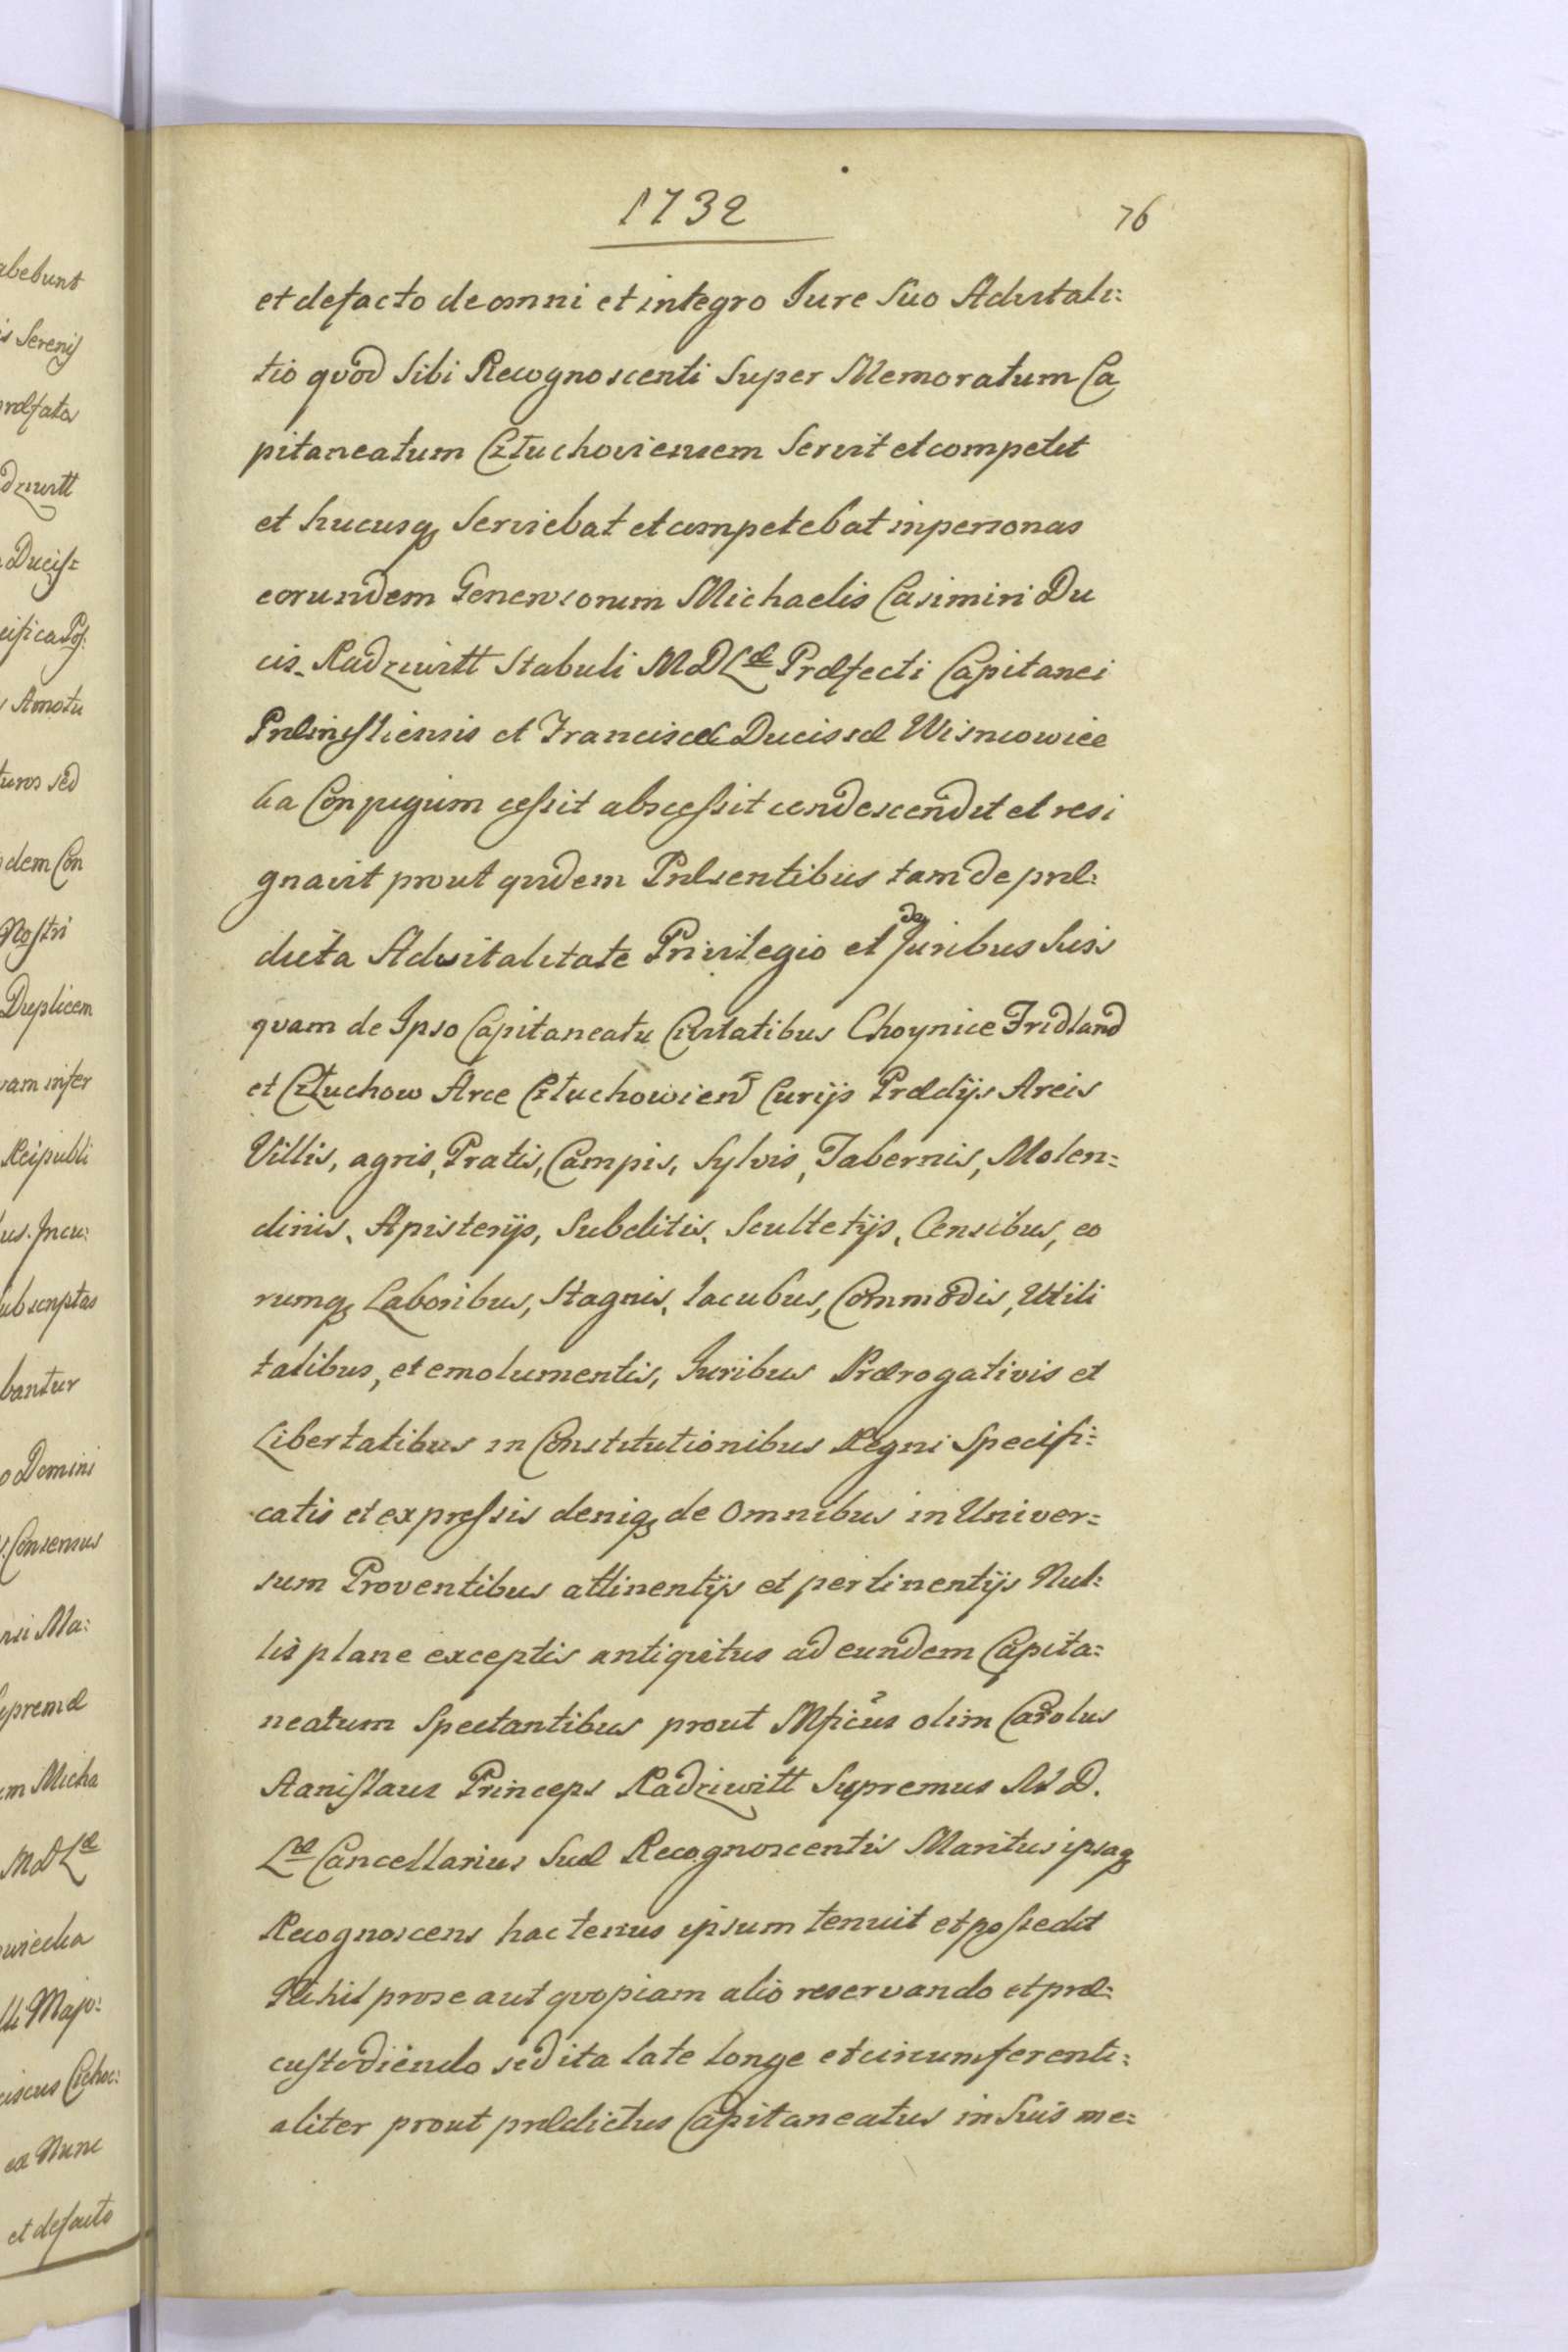 1732
76
et defacto de omni et integro Jure Suo Advitali:
tio quod Sibi Recognoscenti Super Memoratum Ca
pitaneatum Człuchoviensem Servit et competit
et hucusq Serviebat et competebat in personas
eorundem Generosorum Michaelis Casimiri Du
cis Radziwitt Stabuli MDLæ Præfecti Capitanei
et Franciscæ Ducissæ Wisniowiec
ka Conjugum cessit abscessit condescendit et resi
gnavit prout quidem Præsentibus tam de præ:
dicta Advitalitate Privilegio et de Juribus Suis
quam de Ipso Capitaneatu Civitatibus Choynice Fridland
et Człuchow Arce Człuchowien Curijs Prædijs Areis
Villis, agris, Pratis, Campis, Sylvis, Tabernis, Molen=
dinis, Apisterijs, Subditis, Scultetijs, Censibus, eo
rumq Laboribus, Stagnis, lacubus, Commodis, Utili
tatibus, et emolumentis, Juribus Prærogativis et
Libertatibus in Constitutionibus Regni Specifi=
catis et expressis deniq de Omnibus in Univer=
sum Proventibus attinentijs et pertinentijs Nul:
lis plane exceptis antiquitus ad eundem Capita=
neatum Spectantibus prout Mficus olim Carolus
Stanislaus Princeps Radziwitt Supremus M D.
Læ Cancellarius Suæ Recognoscentis Maritus ipsaq
Recognoscens hactenus ipsum tenuit et possedit
Nihil pro se aut quopiam alio reservando et præ:
custodiendo sed ita late longe et circumferenti:
aliter prout prædictus Capitaneatus in Suis me=
abebunt
is Serenis
ræfata
dziwitt
Duciss
cifica Pos:
Amotu
turos sed
dem Con
Nostri
Duplicem
vam infer
Reipubli
us. Incu:
ubscriptas
bantur
o Domini
Consensus
nsi Ma:
upremæ
um Micha
MDLæ
owiecka
lli Majo:
ciscus Cichoc:
ex Nunc
et defacto